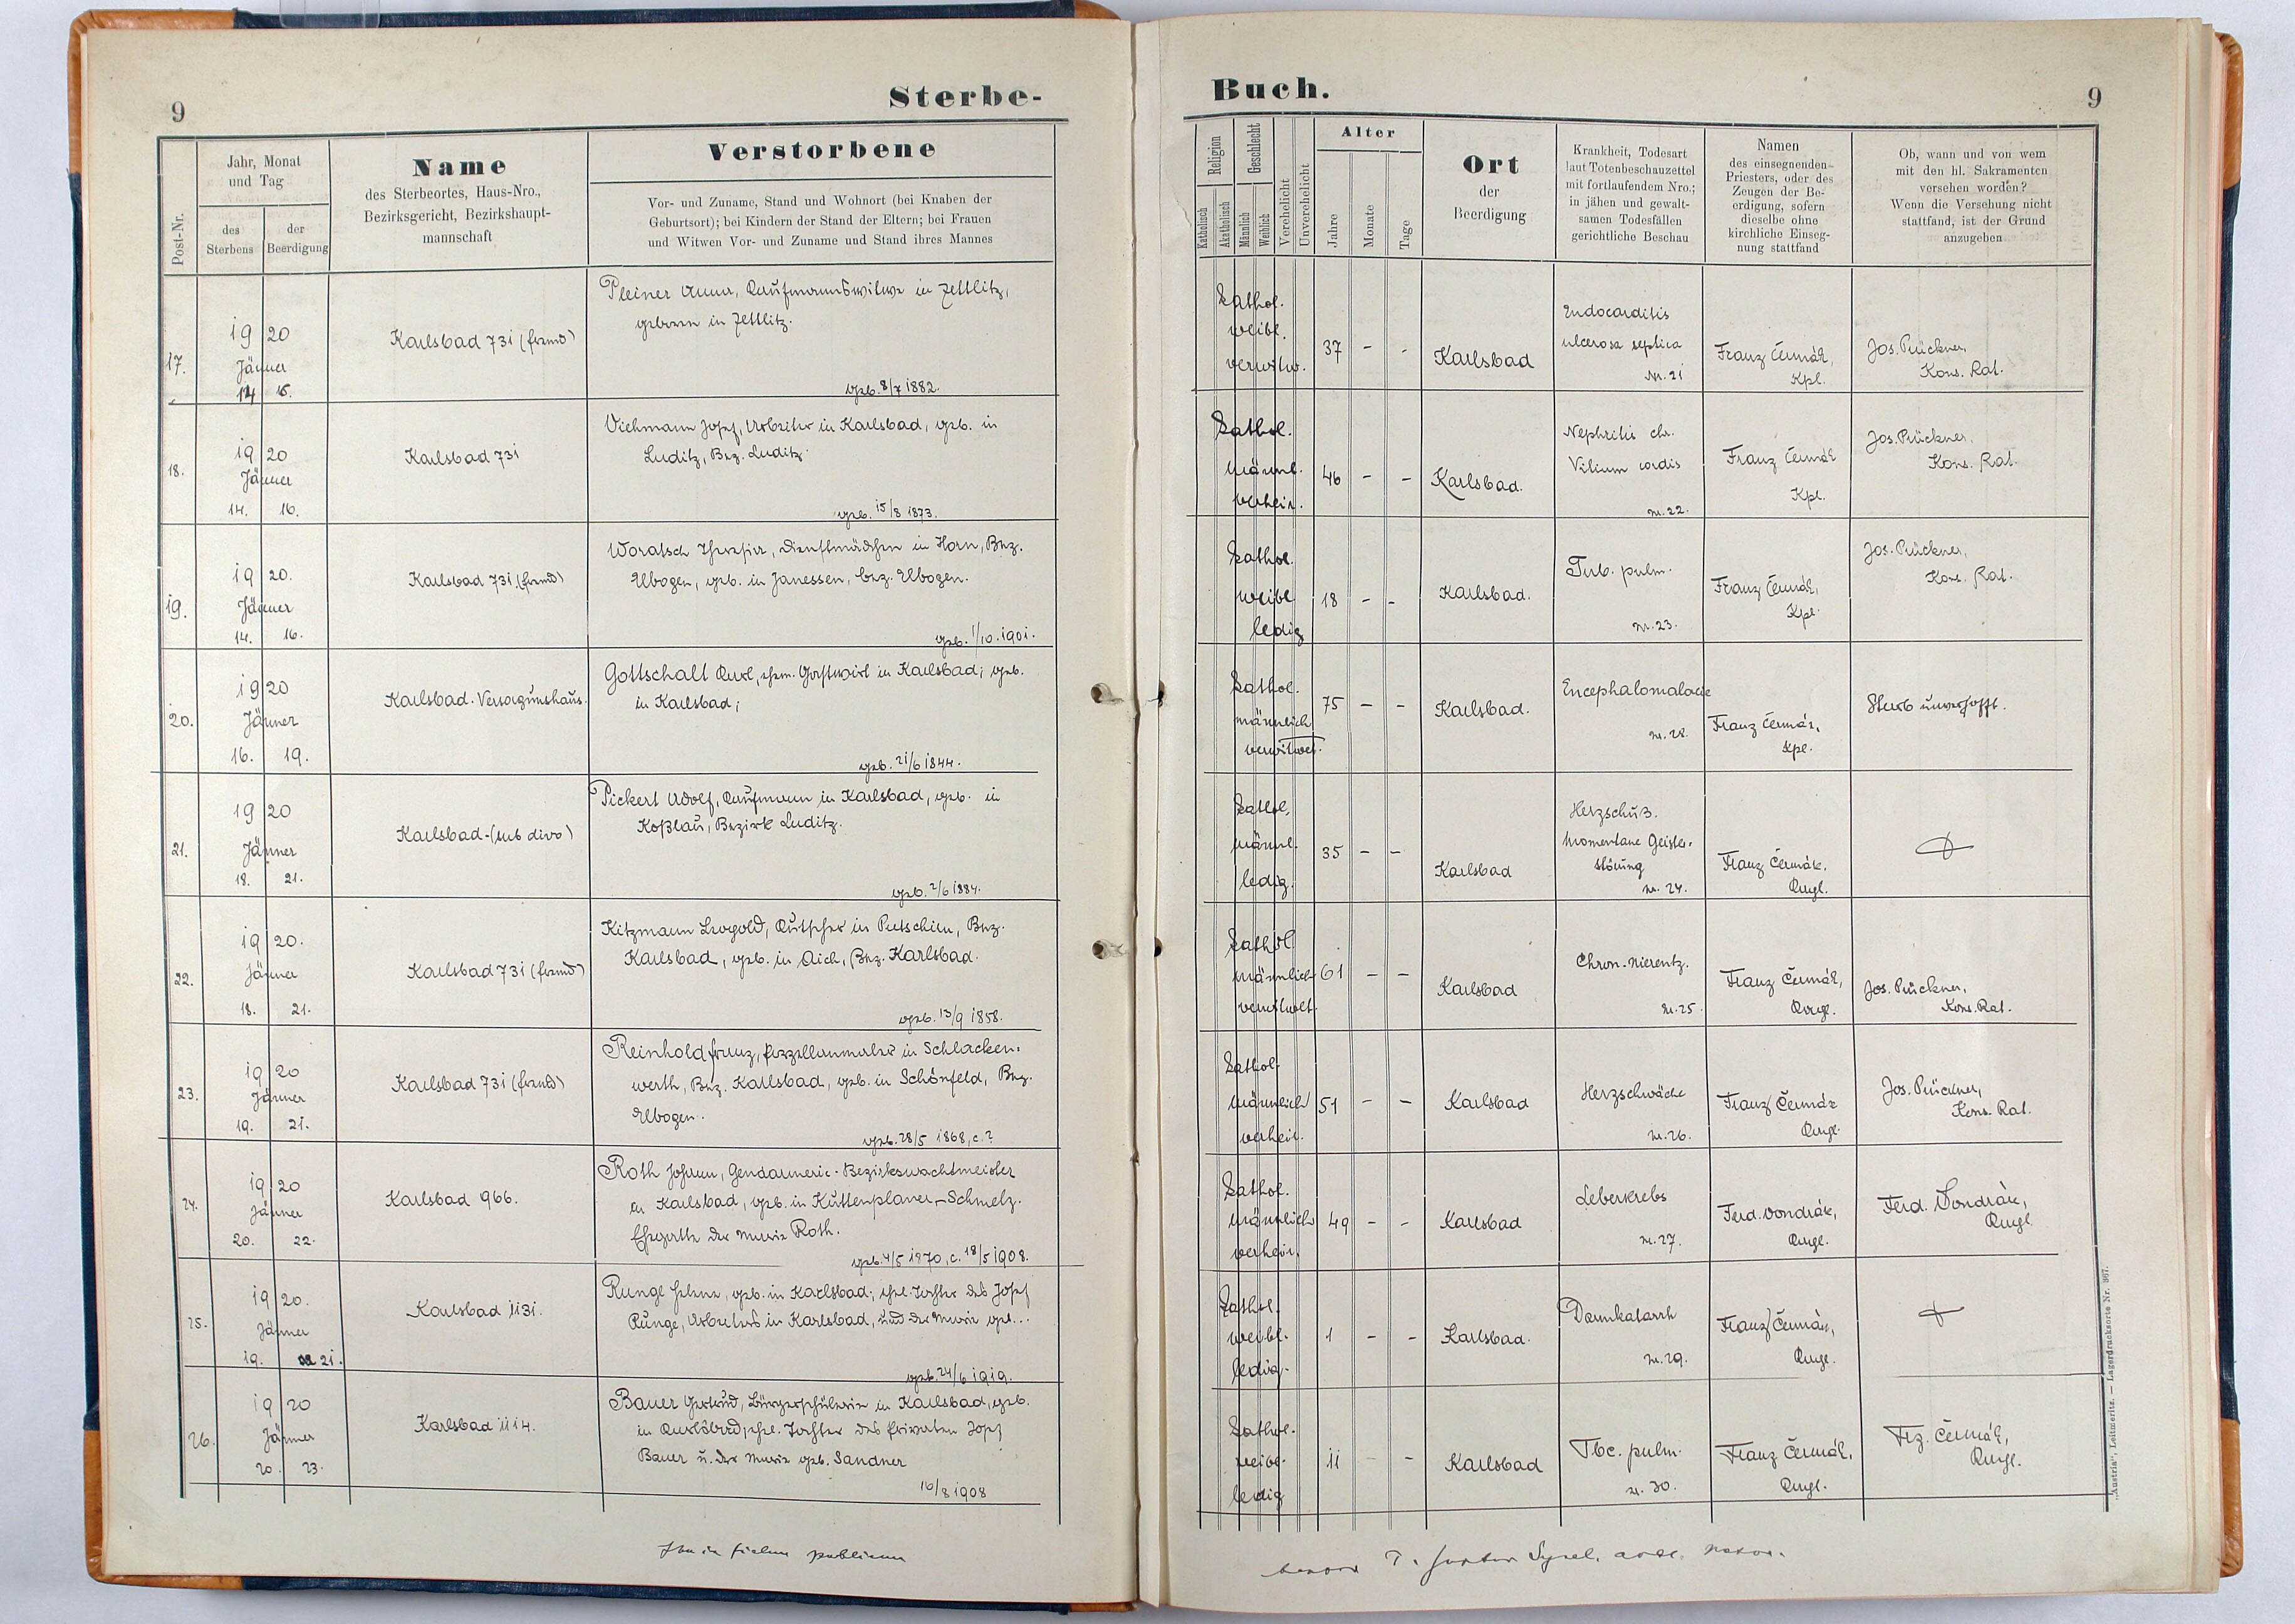 9
Sterbe-
Post-Nr.
Jahr, Monat
und Tag
des
Sterbens
der
Beerdigung
Name
des Sterbeortes, Haus-Nro.,
Bezirksgericht, Bezirkshaupt-
mannschaft
Verstorbene
Vor- und Zuname, Stand und Wohnort (bei Knaben der
Geburtsort); bei Kindern der Stand der Eltern; bei Frauen
und Witwen Vor- und Zuname und Stand ihres Mannes
17.
19 20
Jänner
14 16.
Karlsbad 731 (fremd)
Pleiner Anna, Kaufmannswitwe in Zettlitz,
geboren in Zettlitz.
geb. 8/7 1882.
18.
19 20
Jänner
14. 16.
Karlsbad 731
Viehmann Josef, Arbeiter in Karlsbad, geb. in
Luditz, Bez. Luditz.
geb. 15/8 1873.
19.
19 20.
Jänner
14. 16.
Karlsbad 731 (fremd)
Woratsch Theresia, Dienstmädchen in Horn, Bez.
Elbogen, geb. in Janessen, bez. Elbogen.
geb. 1/10. 1901.
20.
19 20
Jänner
16. 19.
Karlsbad. Versorgunshaus.
Gottschalt Karl, ehem. Gastwirt in Karlsbad; geb.
in Karlsbad;
geb. 21/6 1844.
21.
19 20
Jänner
18. 21.
Karlsbad-(sub divo)
Pickert Adolf, Kaufmann in Karlsbad, geb. in
Koßlau, Bezirk Luditz.
geb. 2/6 1884.
22.
19 20.
Jänner
18. 21.
Karlsbad 731 (fremd)
Kitzmann Leopold, Kutscher in Putschirn, Bez.
Karlsbad, geb. in Aich, Bez. Karlsbad.
geb. 13/9 1858.
23.
19 20
Jänner
19. 21.
Karlsbad 731 (fremd)
Reinhold Franz, Porzellanmaler in Schlacken-
werth, Bez. Karlsbad, geb. in Schönfeld, Bez.
Elbogen.
geb. 28/5 1868, c. ?
24.
19 20
Jänner
20. 22.
Karlsbad 966.
Roth Johann, Gendarmerie-Bezirkswachtmeister
in Karlsbad, geb. in Kuttenplaner-Schmelz.
Ehegatte der Marie Roth.
geb. 4/5 1870, c. 18/5 1908.
25.
19 20.
Jänner
19. 21.
Karlsbad 1131.
Runge Helene, geb. in Karlsbad; ehel. Tochter des Josef
Runge, Arbeiters in Karlsbad, und der Marie geb...
geb. 24/6 1919.
26.
19 20
Jänner
20. 23.
Karlsbad 1114.
Bauer Gertrud, Bürgerschülerin in Karlsbad, geb.
in Karlsbad; ehel. Tochter des Privaten Josef
Bauer u. der Marie geb. Sandner
16/8 1908
Buch.
9
Religion
Katholisch
Akatholisch
Geschlecht
Männlich
Weiblich
Verehelicht
Unverehelicht
Alter
Jahre
Monate
Tage
Ort
der
Beerdigung
Krankheit, Todesart
laut Totenbeschauzettel
mit fortlaufendem Nro.;
in jähen und gewalt-
samen Todesfällen
gerichtliche Beschau
Namen
des einsegnenden
Priesters, oder des
Zeugen der Be-
erdigung, sofern
dieselbe ohne
kirchliche Einseg-
nung stattfand
Ob, wann und von wem
mit den hl. Sakramenten
versehen worden?
Wenn die Versehung nicht
stattfand, ist der Grund
anzugeben
kathol.
weibl.
verwitw.
37 - -
Karlsbad
Endocarditis
ulcerosa septica
Nr. 21
Franz Čermák,
Kpl.
Jos. Prückner,
Kons. Rat.
kathol.
männl.
verheir.
46 - -
Karlsbad.
Nephritis chr.
Vitium cordis
nr. 22.
Franz Čermák
Kpl.
Jos. Prückner,
Kons. Rat.
kathol.
weibl
ledig
18 - -
Karlsbad.
Tub. pulm.
nr. 23.
Franz Čermák,
Kpl.
Jos. Prückner,
Kons. Rat.
kathol.
männlich
verwitwet.
75 - -
Karlsbad.
Encephalomalacie
nr. 28.
Franz Čermák,
Kpl.
Starb unverhofft.
kathol.
männl.
ledig.
35 - -
Karlsbad
Herzschuß.
Momentane Geistes-
störung
nr. 24.
Franz Čermák.
Kupl.
kathol
männlich
verwitwet.
61 - -
Karlsbad
Chron. Nierentz.
nr. 25.
Franz Čermák,
Kupl.
Jos. Prückner,
Kons. Rat.
kathol.
männlich
verheir.
51 - -
Karlsbad
Herzschwäche
nr. 26.
Franz Čermák
Kupl.
Jos. Prückner,
Kons. Rat.
kathol.
männlich
verheir.
49 - -
Karlsbad
Leberkrebs
nr. 27.
Ferd. Vondrák,
Kupl.
Ferd. Vondrák,
Kupl
kathol.
weibl.
ledig.
1 - -
Karlsbad.
Darmkatarrh
nr. 29.
Franz Čermák,
Kupl.
kathol.
weibl.
ledig
11 - -
Karlsbad
Tbc. pulm.
nr. 30.
Franz Čermák,
Kupl.
Frz. Čermák,
Kupl.
"Austria", Leitmeritz. — Lagerdrucksorte Nr. 367.